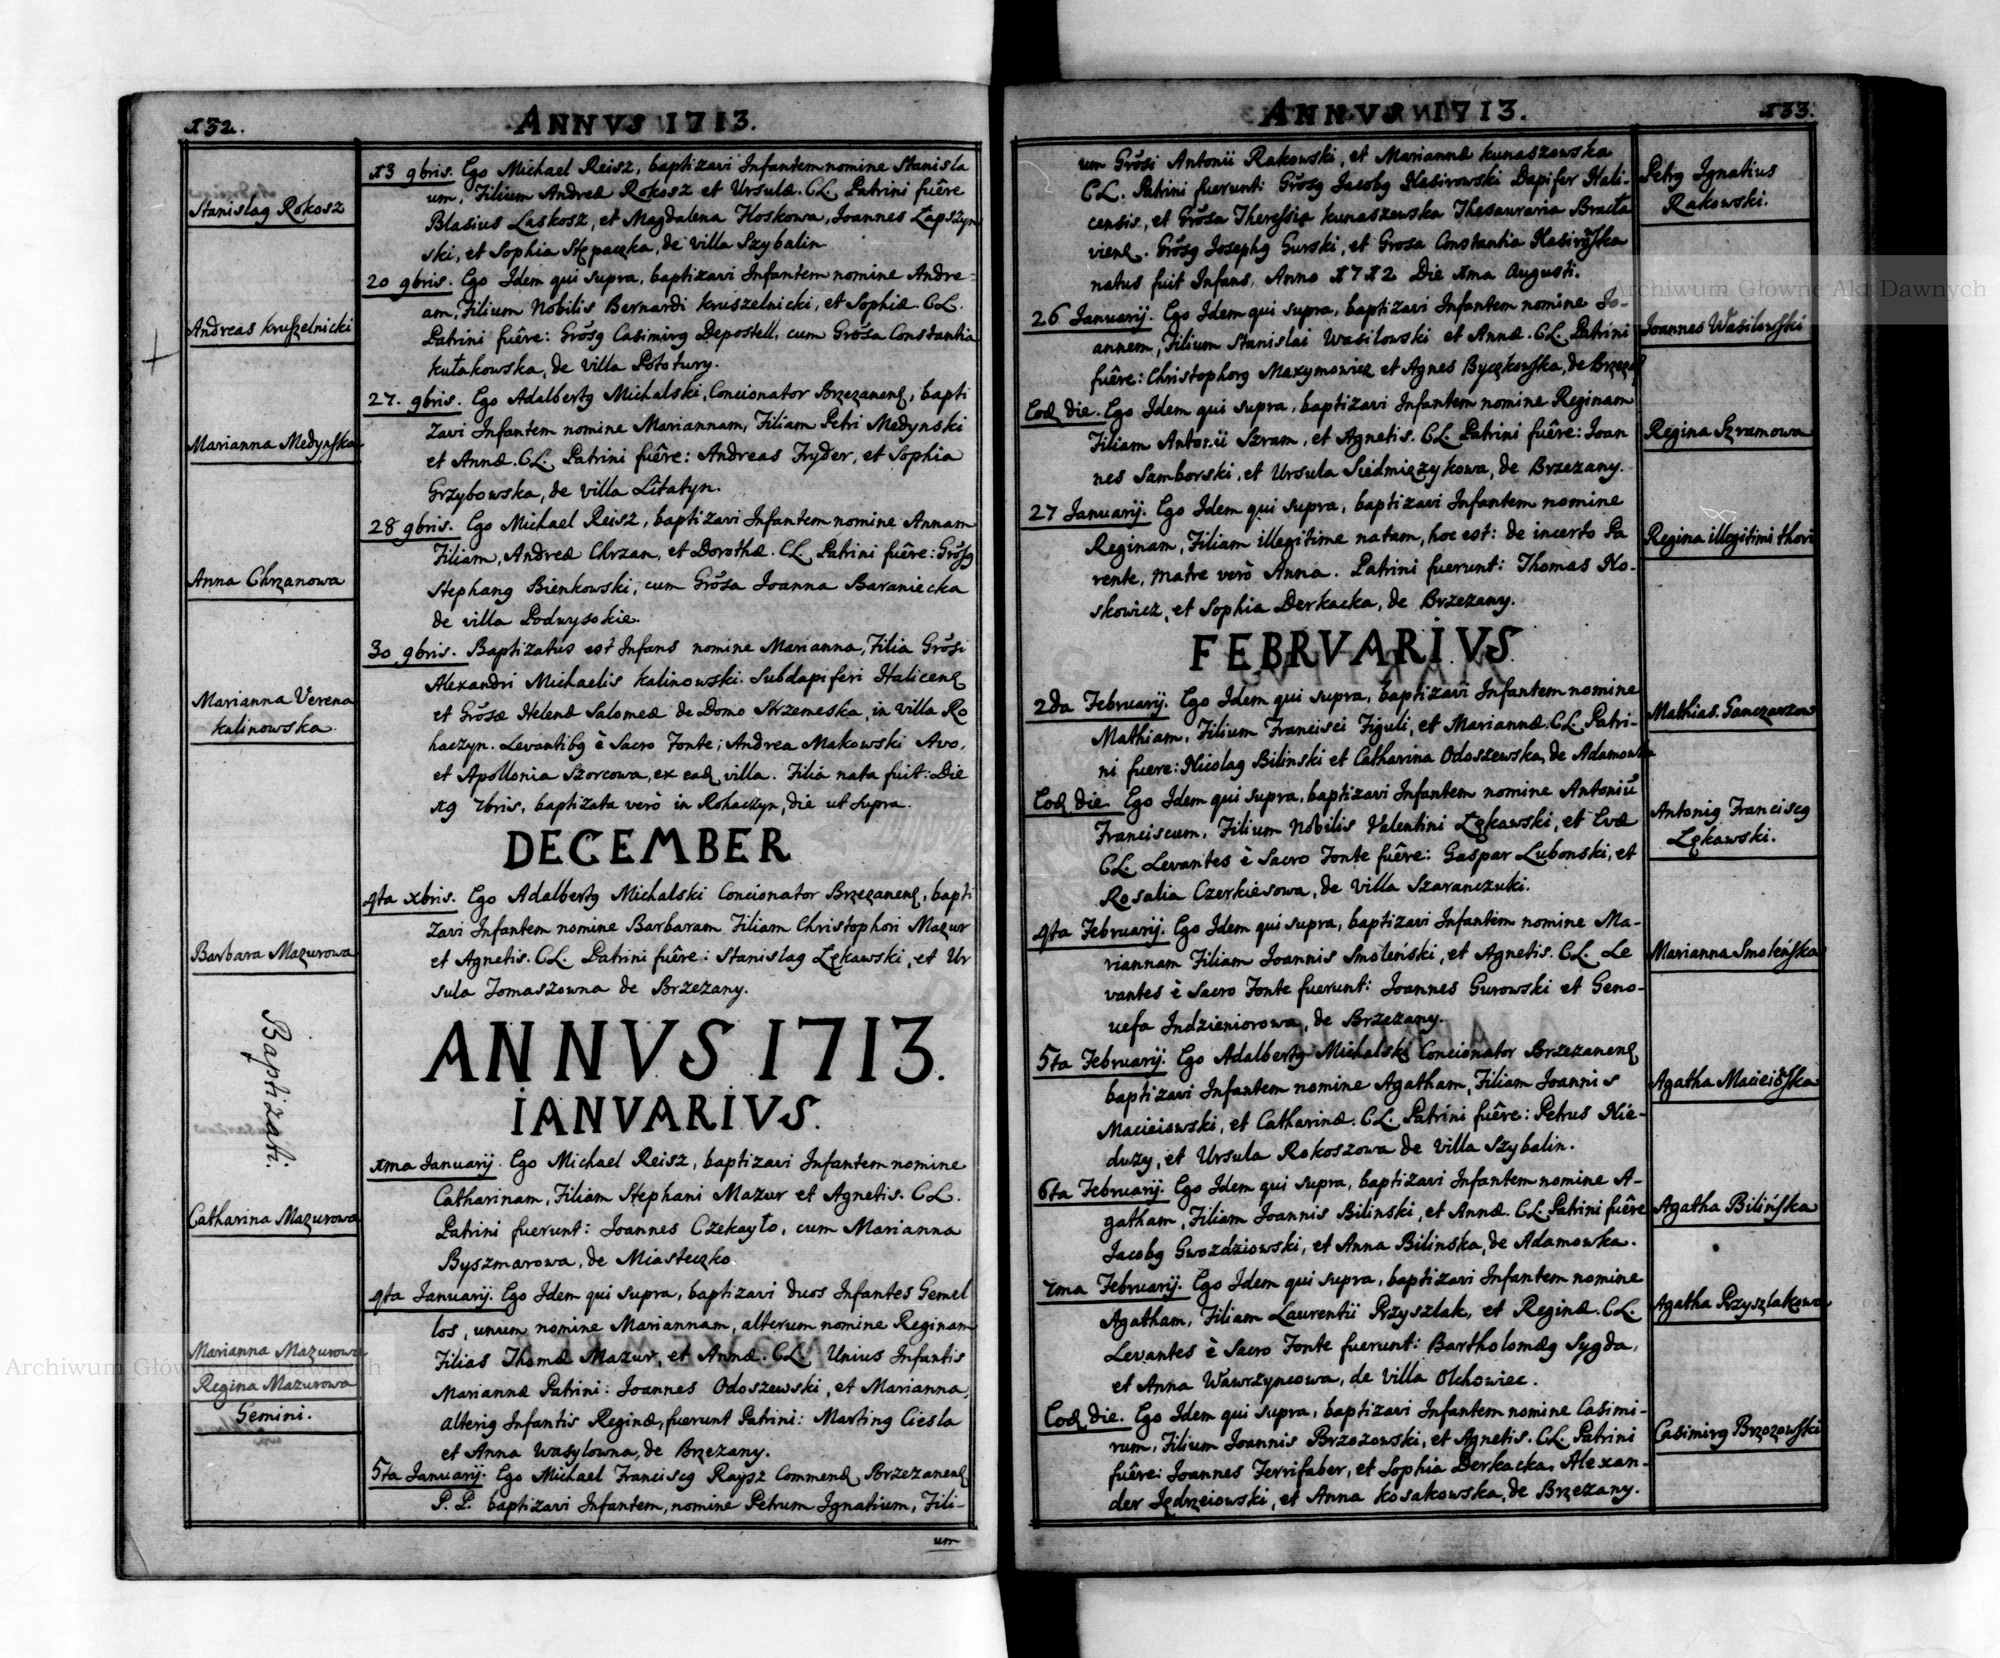 132.
ANNVS 1713.
Stanislaq Rokosz
Andreas Kruszelnicki
Marianna Medynska
Anna Chrzanowa
Marianna Verena
Kalinowska
Barbara Mazurowa
Baptizati.
Catharina Mazurowa
Marianna Mazurowa
Regina Mazurowa
Gemini.
13 9bris. Ego Michael Reisz, baptizavi Infantem nomine Stanisla
um, Filium Andreæ Rokosz et Ursulæ. CL. Patrini fuêre
Blasius Laskosz, et Magdalena Kloskowa, Joannes Łapszyn
ski, et Sophia Stępaczka, de villa Szybalin.
20 9bris. Ego Idem qui supra, baptizavi Infantem nomine Andre=
am, Filium Nobilis Bernardi Kruszelnicki, et Sophiæ. CL.
Patrini fuêre: Grõsq Casimirq Depostell, cum Grõsa Constantia
Kułakowska, de villa Potutury.
27. 9bris. Ego Adalbertq Michalski, Concionator Brzezanenſ, bapti
zavi Infantem nomine Mariannam, Filiam Petri Medynski
et Annæ. CL. Patrini fuêre: Andreas Fryder, et Sophia
Grzybowska, de villa Litatyn.
28 9bris. Ego Michael Reisz, baptizavi Infantem nomine Annam
Filiam, Andreæ Chrzan, et Dorothæ. CL. Patrini fuêre: Grõsq
Stephanq Bienkowski, cum Grõsa Joanna Baraniecka
de villa Podwysokie.
30 9bris. Baptizatus est Infans nomine Marianna, Filia Grõsi
Alexandri Michaelis Kalinowski. Subdapiferi Halicenſ
et Grõsæ Helenæ Salomeæ de Domo Strzemeska, in villa Ro
haczyn. Levantibq è Sacro Fonte; Andrea Makowski Avo,
et Apollonia Szorcowa, ex eaď villa. Filia nata fuit: Die
19 7bris, baptizata verò in Rohaczyn, die ut supra.
DECEMBER
4ta xbris. Ego Adalbertq Michalski Concionator Brzezanenſ, bapti
zavi Infantem nomine Barbaram Filiam Christophori Mazur
et Agnetis. CL. Patrini fuêre: Stanislaq Lękawski, et Ur
sula Tomaszowna de Brzezany.
ANNVS 1713.
IANVARIVS.
1ma Januarij. Ego Michael Reisz, baptizavi Infantem nomine
Catharinam, Filiam Stephani Mazur et Agnetis. CL.
Patrini fuerunt: Joannes Czekayło, cum Marianna
Byszmarowa, de Miasteczko.
4ta Januarij. Ego Idem qui supra, baptizavi duos Infantes Gemel
los, unum nomine Mariannam, alterum nomine Reginam
Filias Thomæ Mazur, et Annæ. CL. Unius Infantis
Mariannæ Patrini: Joannes Odoszewski, et Marianna,
alteriq Infantis Reginæ, fuerunt Patrini: Martinq Ciesla
et Anna Wasylowna, de Brzezany.
5ta Januarij. Ego Michael Franciscq Raysz Commenď Brzezanenſ
P. P. baptizavi Infantem, nomine Petrum Ignatium, Fili-
um
ANNVS 1713.
133.
um Grõsi Antonii Rakowski, et Mariannæ Kunaszowska
CL. Patrini fuerunt: Grõsq Jacobq Nasirowski Dapifer Hali-
censis, et Grõsa Theressia Kunaszewska Thesauraria Bracła
vienſ. Grõsq Josephq Gurski, et Grosa Constantia Nasirõſska
natus fuit Infans, Anno 1712 Die 1ma Augusti.
26 Januarij. Ego Idem qui supra, baptizavi Infantem nomine Jo-
annem, Filium Stanislai Wasilowski et Annæ. CL. Patrini
fuêre: Christophorq Maxymowicz et Agnes Byczkowska, de Brzeza
Eoď die. Ego Idem qui supra, baptizavi Infantem nomine Reginam
Filiam Antonii Szram, et Agnetis. CL. Patrini fuêre: Joan
nes Samborski, et Ursula Siedmięzykowa, de Brzezany.
27 Januarij. Ego Idem qui supra, baptizavi Infantem nomine
Reginam, Filiam illegitime natam, hoc est: de incerto Pa
rente, Matre verò Anna. Patrini fuerunt: Thomas No-
skowicz, et Sophia Derkacka, de Brzezany.
FEBRVARIVS
2da Februarij. Ego Idem qui supra, baptizavi Infantem nomine
Mathiam, Filium Francisci Figuli, et Mariannæ. CL. Patri-
ni fuere: Nicolaq Bilinski et Catharina Odoszewska, de Adamowka
Eoď die. Ego Idem qui supra, baptizavi Infantem nomine Antoniũ
Franciscum, Filium Nobilis Valentini Lękawski, et Evæ
CL. Levantes è Sacro Fonte fuêre: Gaspar Lubonski, et
Rosalia Czerkiesowa, de villa Szaranczuki.
4ta Februarij. Ego Idem qui supra, baptizavi Infantem nomine Ma-
riannam Filiam Joannis Smoleński, et Agnetis. CL. Le
vantes è Sacro Fonte fuerunt: Joannes Gurowski et Geno-
uefa Indzieniorowa, de Brzezany.
5ta Februarij. Ego Adalbertq Michalski Concionator Brzezanenſ
baptizavi Infantem nomine Agatham, Filiam Joannis
Macieiowski, et Catharinæ. CL. Patrini fuêre: Petrus Nie-
duzy, et Ursula Rokoszowa de villa Szybalin.
6ta Februarij. Ego Idem qui supra, baptizavi Infantem nomine A-
gatham, Filiam Joannis Bilinski, et Annæ. CL. Patrini fuêre
Jacobq Gwozdziowski, et Anna Bilinska, de Adamowka.
7ma Februarij. Ego Idem qui supra, baptizavi Infantem nomine
Agatham, Filiam Laurentii Przyszlak, et Reginæ. CL.
Levantes è Sacro Fonte fuerunt: Bartholomæq Sygda,
et Anna Wawrzyncowa, de villa Olchowiec.
Eoď die. Ego Idem qui supra, baptizavi Infantem nomine Casimi-
rum, Filium Joannis Brzozowski, et Agnetis. CL. Patrini
fuêre: Joannes Ferrifaber, et Sophia Derkacka, Alexan-
der Jędrzeiowski, et Anna Kosakowska, de Brzezany.
Petrq Ignatius
Rakowski.
Joannes Wasilowski
Regina Szramowa
Regina illegitimi thori
Mathias. Ganczarzow
Antoniq Franciscq
Lękawski.
Marianna Smoleńska
Agatha Macieiõſska
Agatha Bilińska
Agatha Przyszlakowa
Casimirq Brzozowski
Archiwum Główne Akt Dawnych
Archiwum Główne Akt Dawnych